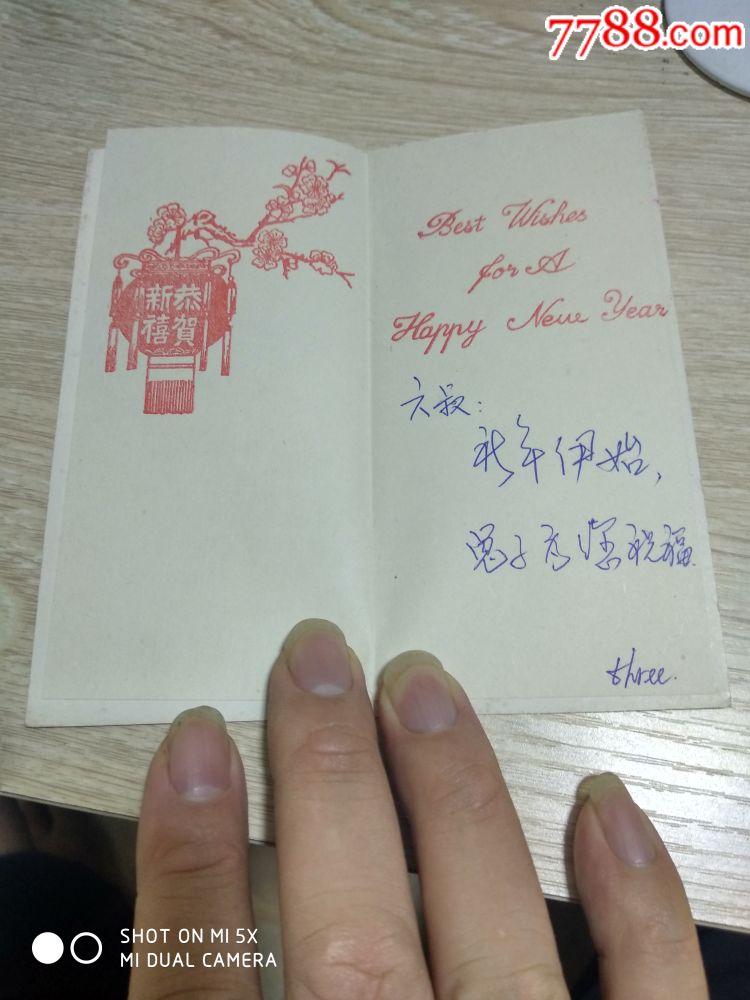 7788.com
恭賀
新禧
Best Wishes
for A
Happy New Year
六叔：
新年伊始，
兔子为您祝福
three.
SHOT ON MI 5X
MI DUAL CAMERA